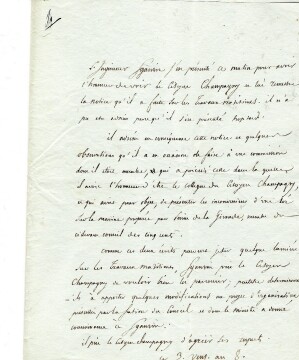 L'Ingénieur Sganzin s'est présenté ce matin pour avoir
l'honneur de voir le Citoyen Champagny et lui remettre
la notice qu'il a faite sur les Travaux maritimes. il n'a
pu être admis parcequ'il s'est présenté trop tard.
il adresse en conséquence cette notice et quelques
observations qu'il a eu occasion de faire, à une commission
dont il était membre, et qui a précédé celle dans laquelle
il avait l'honneur d'être le collègue du Citoyen Champagny,
et qui avait pour objet de présenter les inconvéniens d'une loi
sur la marine proposée par de la Gironde, membre du
ci-devant conseil des cinq cents.
comme ces deux écrits peuvent jetter quelque lumière
sur les Travaux maritimes, Sganzin prie le Citoyen
Champagny de vouloir bien les parcourir; peut-être détermineront
ils à apporter quelques modifications au projet d'organisation
présenté par la section du conseil et dont le ministre a donné
connaissance à Sganzin.
il prie le Citoyen Champagny d'agréer ses respects
ce 3. vent. an 8.